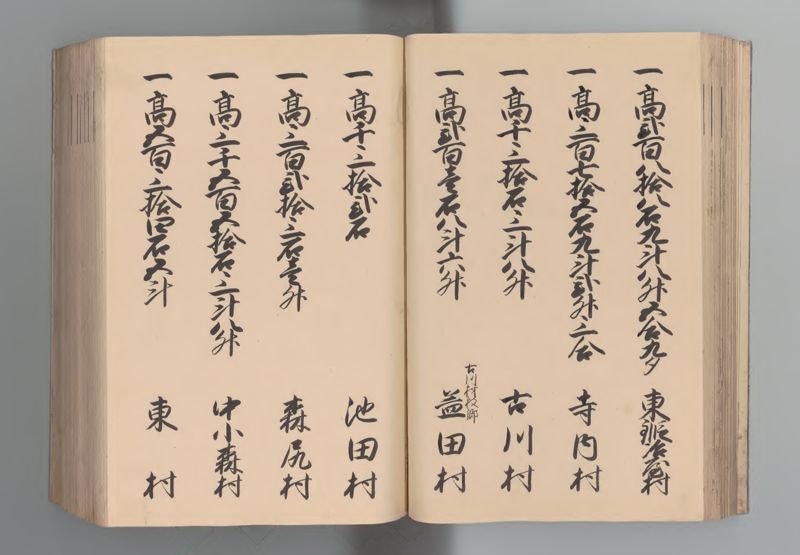 一高弐百八拾八石九斗八升五合九夕 東鍛冶屋村
一高三百七拾五石九斗弐升三合 寺内村
一高千三拾石三斗八升 古川村
一高弐百壱石八斗六升 古川村枝郷 益田村
一高千三拾弐石 池田村
一高三百弐拾三石壱升 森尻村
一高三千五百五拾石三斗八升 中小森村
一高五百三拾四石五斗 東村